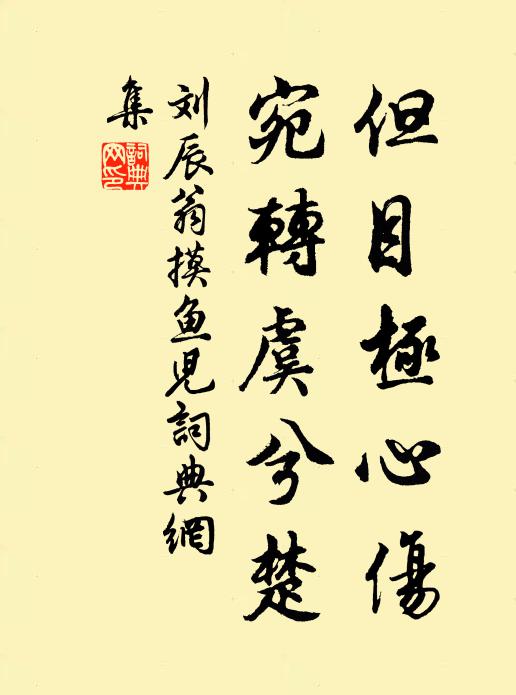 但目極心傷
宛轉虞兮楚
刘辰翁摸鱼児詞典網
集
詞典
网印